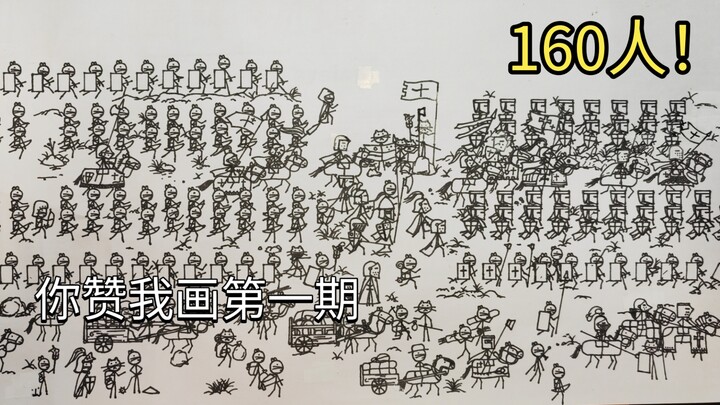 160人！
你赞我画第一期